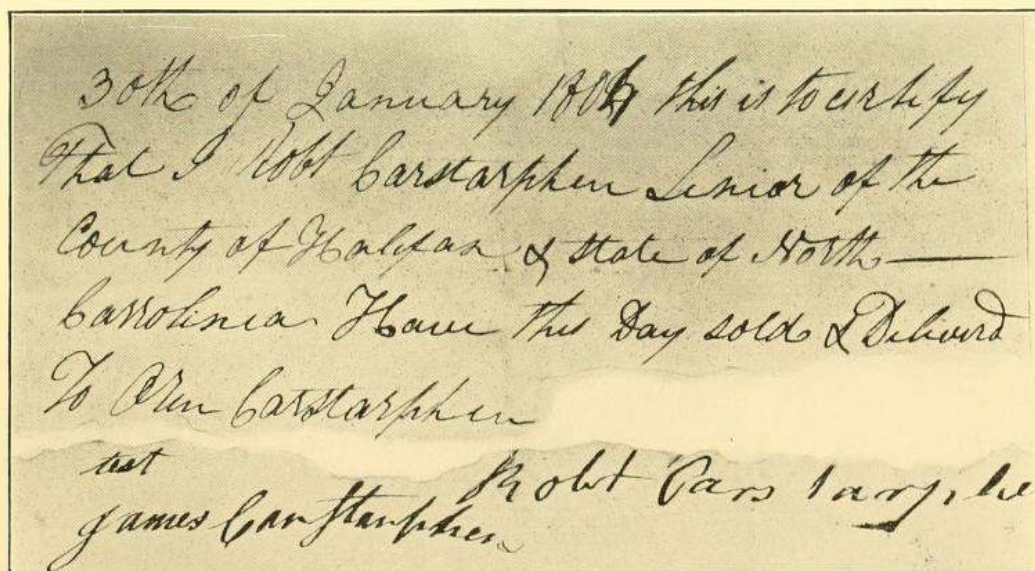 30th of January 1804 this is to certify
That I Robt Carstarphen Senior of the
County of Halifax & state of North
Carrolinia Have this Day sold & Deliverd
To Oren Carstarphen
test
Robt Carstarphe
James Carstarphen